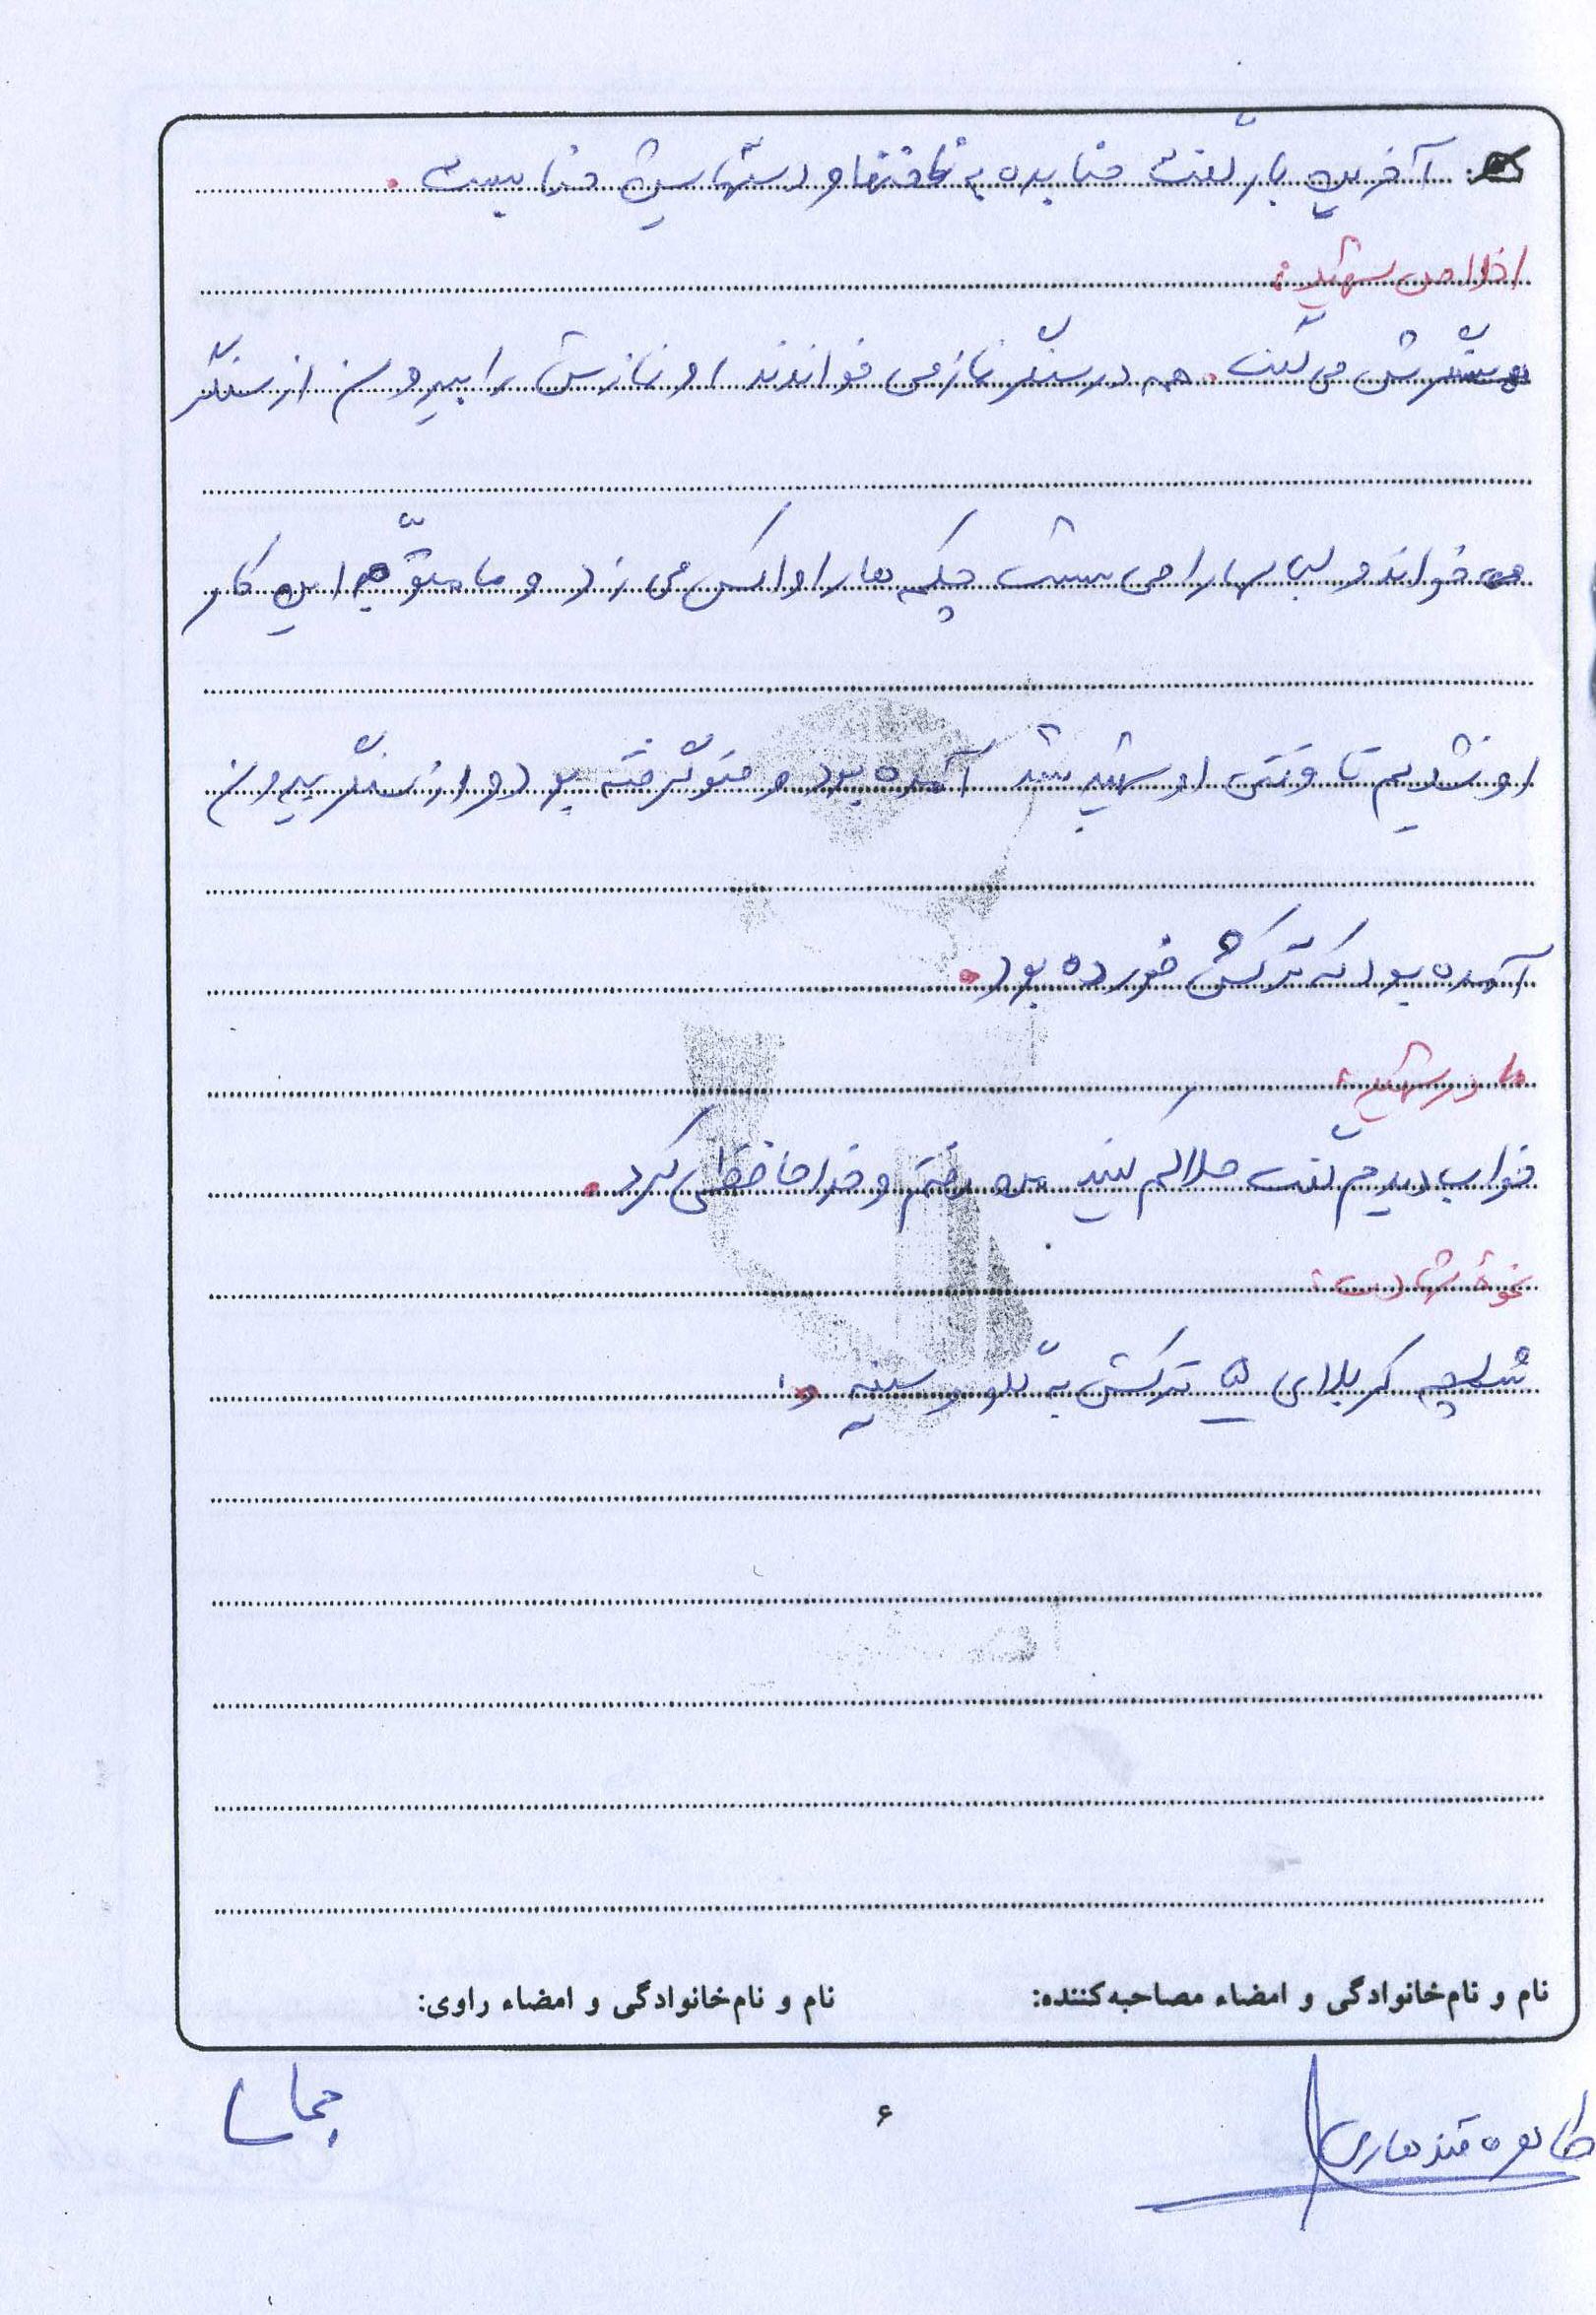 آخرین بار گفت حنا بده به ناخنها و دستهایش حنا بست.
اخلاص شهید:
همسنگرش می گفت. همه در سنگر نماز می خواندند او نمازش را بیرون از سنگر
می خواند و لباسها را می شست چکمه ها را واکس می زد و ما متوجّه این کار
او نشدیم تا وقتی او شهید شد آمده بود وضو گرفته بود و از سنگر بیرون
آمده بود که ترکش خورده بود.
مادر شهید:
خواب دیدم گفت حلالم کنید من رفتم و خداحافظی کرد.
نحوۀ شهادت:
شلمچه کربلای ۵ ترکش به گلو و سینه
نام و نام‌خانوادگی و امضاء مصاحبه‌کننده:
نام و نام‌خانوادگی و امضاء راوی:
طاهره قندهاری
۶